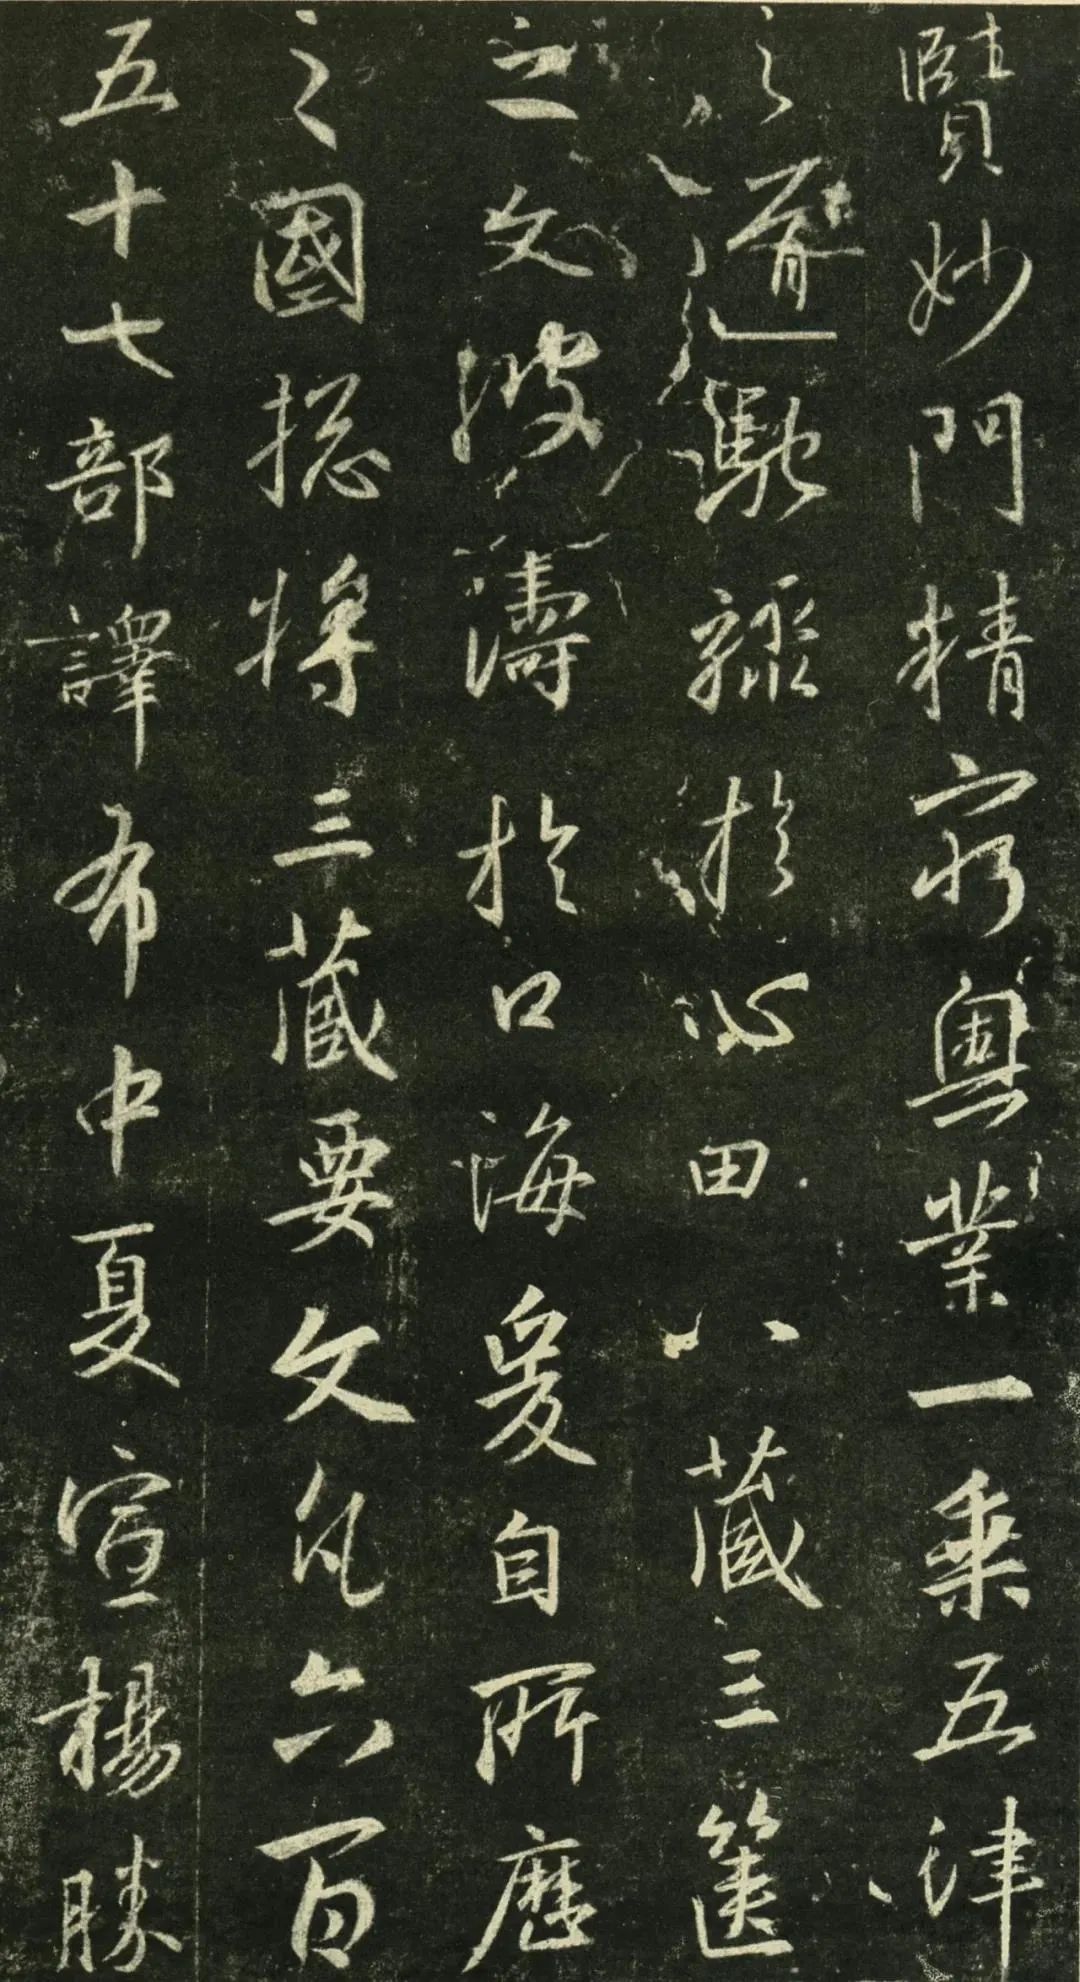 賢妙門精窮奧業一乘五津
之道馳驟於心田八藏三篋
之文波濤於口海爰自所歷
之國揔將三藏要文凡六百
五十七部譯布中夏宣楊勝